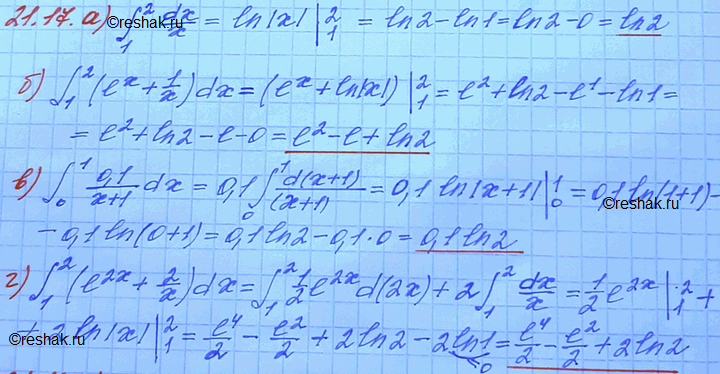 21.17. а) ∫₁² dx/x = ln|x| |₁² = ln2 - ln1 = ln2 - 0 = ln2
б) ∫₁² (eˣ + 1/x) dx = (eˣ + ln|x|) |₁² = e² + ln2 - e¹ - ln1 =
= e² + ln2 - e - 0 = e² - e + ln2
в) ∫₀¹ 0,1/(x+1) dx = 0,1 ∫₀¹ d(x+1)/(x+1) = 0,1 ln|x+1| |₀¹ = 0,1 ln(1+1) -
- 0,1 ln(0+1) = 0,1 ln2 - 0,1·0 = 0,1 ln2
г) ∫₁² (e²ˣ + 2/x) dx = ∫₁² 1/2 e²ˣ d(2x) + 2 ∫₁² dx/x = 1/2 e²ˣ |₁² +
+ 2 ln|x| |₁² = e⁴/2 - e²/2 + 2 ln2 - 2 ln1 = e⁴/2 - e²/2 + 2 ln2
0
©reshak.ru
©reshak.ru
©reshak.ru
©reshak.ru
©reshak.ru